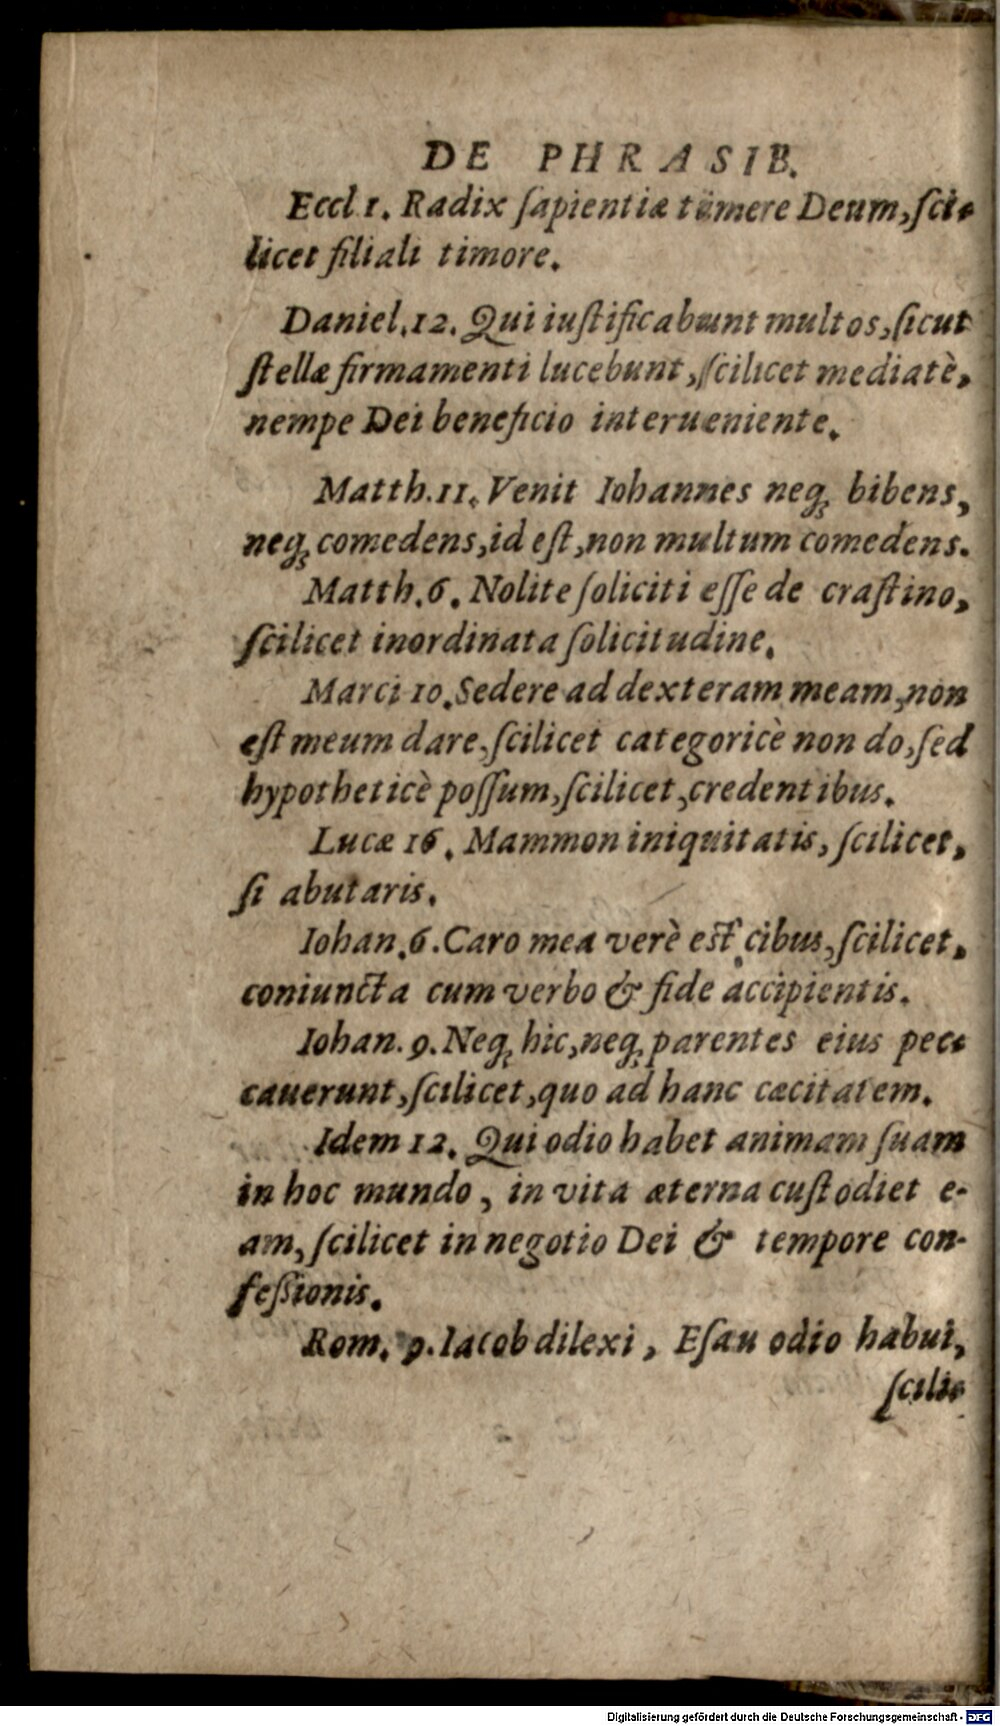 DE PHRASIB.
Eccl 1. Radix ſapientiæ timere Deum, ſci-
licet filiali timore.
Daniel. 12. Qui iuſtificabunt multos, ſicut
ſtellæ firmamenti lucebunt, ſcilicet mediatè,
nempe Dei beneficio interueniente.
Matth. 11. Venit Iohannes neq; bibens,
neq; comedens, id eſt, non multum comedens.
Matth. 6. Nolite ſoliciti eſſe de craſtino,
ſcilicet inordinata ſolicitudine.
Marci 10. Sedere ad dexteram meam, non
eſt meum dare, ſcilicet categoricè non do, ſed
hypotheticè poſſum, ſcilicet, credentibus.
Lucæ 16. Mammon iniquitatis, ſcilicet,
ſi abutaris.
Iohan. 6. Caro mea verè eſt cibus, ſcilicet,
coniuncta cum verbo & fide accipientis.
Iohan. 9. Neq; hic, neq; parentes eius pec-
cauerunt, ſcilicet, quo ad hanc cæcitatem.
Idem 12. Qui odio habet animam ſuam
in hoc mundo, in vita æterna cuſtodiet e-
am, ſcilicet in negotio Dei & tempore con-
feſsionis.
Rom. 9. Iacob dilexi, Eſau odio habui,
ſcili-
Digitalisierung gefördert durch die Deutsche Forschungsgemeinschaft - DFG